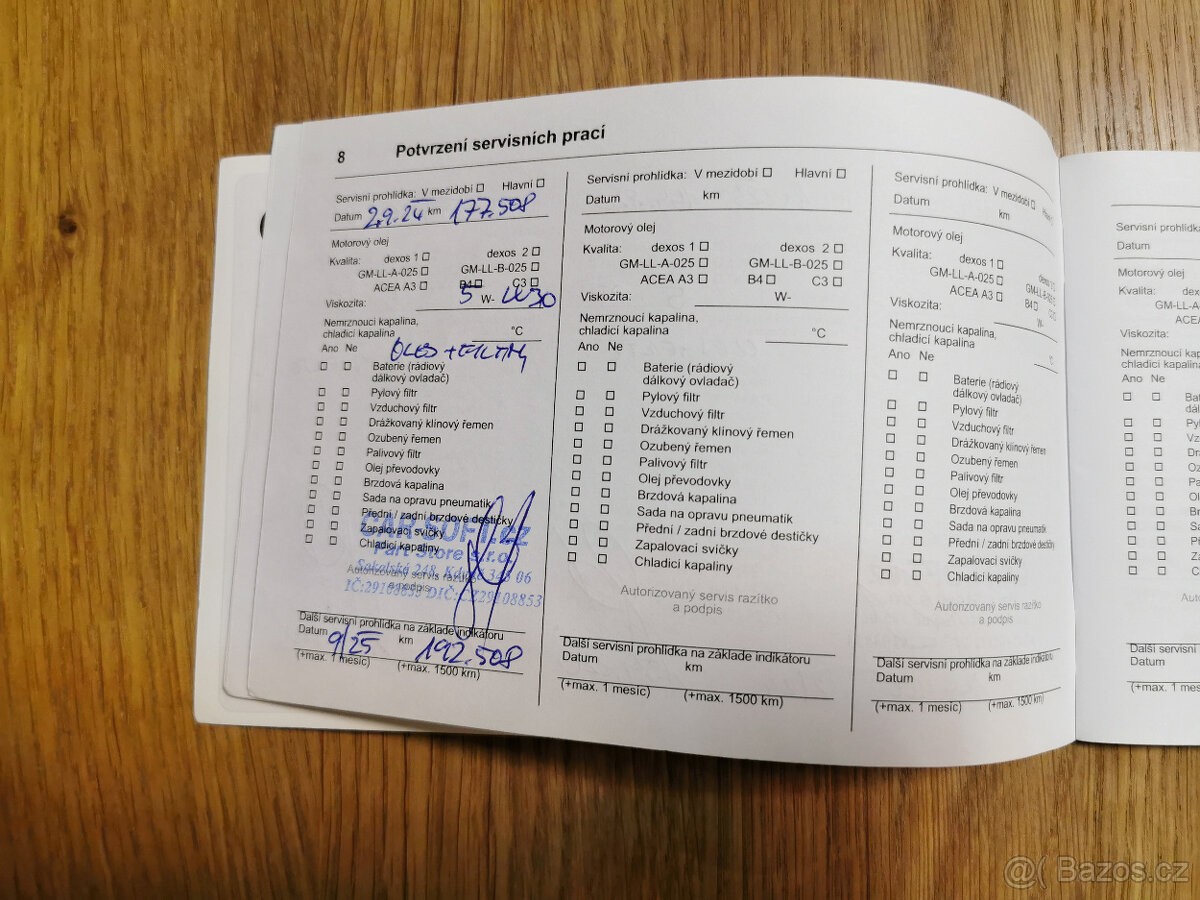 8 Potvrzení servisních prací
Servisní prohlídka: V mezidobí □ Hlavní □
Datum 2.9.24 km 177.508
Motorový olej
Kvalita: dexos 1 □ dexos 2 □
GM-LL-A-025 □ GM-LL-B-025 □
ACEA A3 □ B4 □ C3 □
Viskozita: 5 W-
Nemrznoucí kapalina,
chladicí kapalina °C
Ano Ne
□ □ Baterie (rádiový
dálkový ovladač)
□ □ Pylový filtr
□ □ Vzduchový filtr
□ □ Drážkovaný klínový řemen
□ □ Ozubený řemen
□ □ Palivový filtr
□ □ Olej převodovky
□ □ Brzdová kapalina
□ □ Sada na opravu pneumatik
□ □ Přední / zadní brzdové destičky
□ □ Zapalovací svíčky
□ □ Chladicí kapaliny
CAR SOFT.cz
Part Store s.r.o.
Sokolská 248, Kdyně 345 06
IČ:29108853 DIČ:CZ29108853
Autorizovaný servis razítko
a podpis
Další servisní prohlídka na základě indikátoru
Datum 9/25 km 192.508
(+max. 1 mesíc) (+max. 1500 km)
Servisní prohlídka: V mezidobí □ Hlavní □
Datum km
Motorový olej
Kvalita: dexos 1 □ dexos 2 □
GM-LL-A-025 □ GM-LL-B-025 □
ACEA A3 □ B4 □ C3 □
Viskozita: W-
Nemrznoucí kapalina,
chladicí kapalina °C
Ano Ne
□ □ Baterie (rádiový
dálkový ovladač)
□ □ Pylový filtr
□ □ Vzduchový filtr
□ □ Drážkovaný klínový řemen
□ □ Ozubený řemen
□ □ Palivový filtr
□ □ Olej převodovky
□ □ Brzdová kapalina
□ □ Sada na opravu pneumatik
□ □ Přední / zadní brzdové destičky
□ □ Zapalovací svíčky
□ □ Chladicí kapaliny
Autorizovaný servis razítko
a podpis
Další servisní prohlídka na základě indikátoru
Datum km
(+max. 1 mesíc) (+max. 1500 km)
Servisní prohlídka: V mezidobí □ Hlavní □
Datum km
Motorový olej
Kvalita: dexos 1 □
GM-LL-A-025 □
ACEA A3 □ B4 □
Viskozita: W-
Nemrznoucí kapalina,
chladicí kapalina °C
Ano Ne
□ □ Baterie (rádiový
dálkový ovladač)
□ □ Pylový filtr
□ □ Vzduchový filtr
□ □ Drážkovaný klínový řemen
□ □ Ozubený řemen
□ □ Palivový filtr
□ □ Olej převodovky
□ □ Brzdová kapalina
□ □ Sada na opravu pneumatik
□ □ Přední / zadní brzdové destičky
□ □ Zapalovací svíčky
□ □ Chladicí kapaliny
Autorizovaný servis razítko
a podpis
Další servisní prohlídka na základě indikátoru
Datum km
(+max. 1 mesíc) (+max. 1500 km)
Servisní prohlídka
Datum
Motorový olej
Kvalita:
Viskozita:
Nemrznoucí
chladicí
Ano Ne
Další servisní
Datum
(+max. 1 mesíc)
Bazos.cz